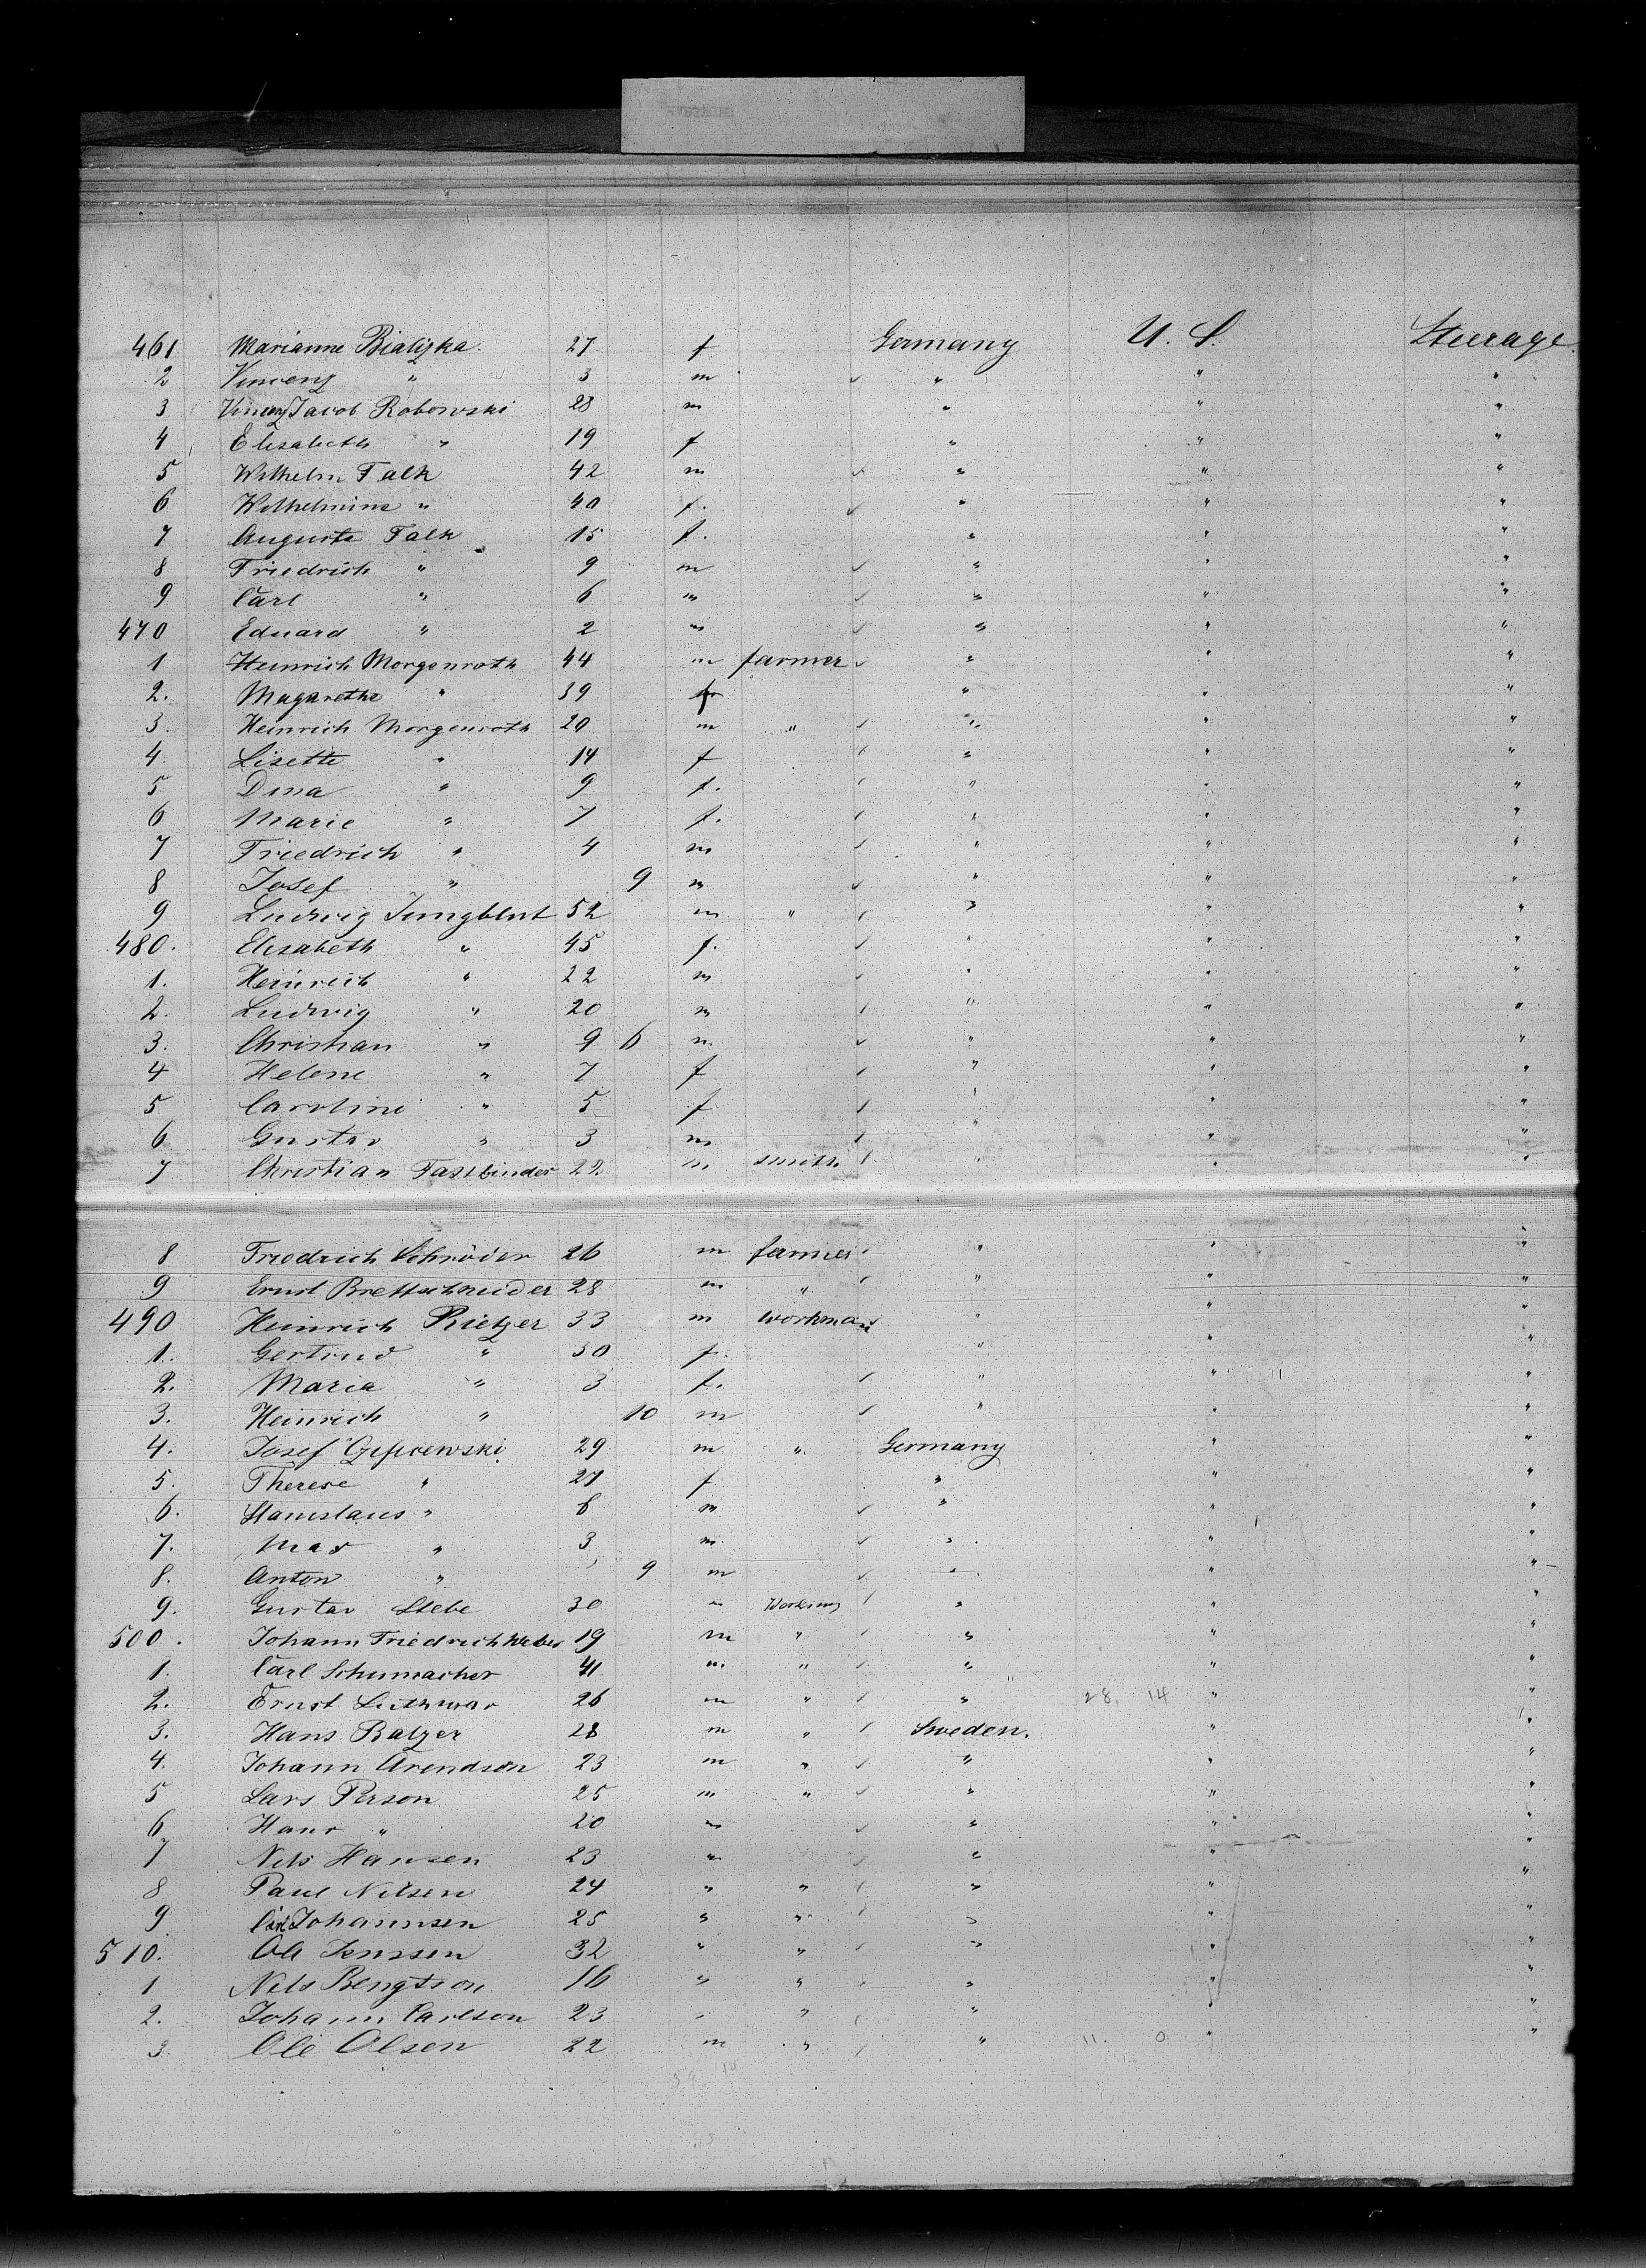 461 Marianne Bializka 27 f Germany U. S. Steerage
2 Vincenz " 3 m " " "
3 Vincenz Jacob Robowski 28 m " " "
4 Elisabeth " 19 f " " "
5 Wilhelm Falk 42 m " " "
6 Wilhelmine " 40 f. " " "
7 Auguste Falk 15 f. " " "
8 Friedrich " 9 m " " "
9 Carl " 6 m " " "
470 Eduard " 2 m " " "
1 Heinrich Morgenroth 44 m farmer " " "
2. Magarethe " 39 f " " "
3. Heinrich Morgenroth 20 m " " " "
4. Lisette " 14 f " " "
5 Dina " 9 f. " " "
6 Marie " 7 f. " " "
7 Friedrich " 4 m " " "
8 Josef " 9 m " " "
9 Ludwig Jungblut 52 m " " " "
480. Elisabeth " 45 f. " " "
1. Heinrich " 22 m " " "
2. Ludwig " 20 m " " "
3. Christian " 9 6 m. " " "
4 Helene " 7 f " " "
5 Caroline " 5 f " " "
6 Gustav " 3 m " " "
7 Christian Fassbinder 22 m smith " " "
8 Friedrich Schröder 26 m farmer " " "
9 Ernst Brettschneider 28 m " " " "
490 Heinrich Rietzer 33 m workman " " "
1. Gertrud " 30 f. " " "
2. Maria " 3 f. " " "
3. Heinrich " 10 m " " "
4. Josef 29 m " Germany " "
5. Therese " 27 f " " "
6. Stanislaus " 6 m " " "
7. Max " 3 m. " " "
8. Anton " 9 m " " "
9. Gustav Stebe 30 m " " "
500. Johann Friedrich Weber 19 m " " " "
1. Carl Schumacher 41 m. " " " "
2. Ernst 26 m " " 28. 14 " "
3. Hans Balzer 28 m " Sweden. " "
4. Johann Arendson 23 m " " " "
5 Lars Person 25 m " " " "
6 Hans " 20 m " " "
7 Nils Hansen 23 " " " "
8 Paul Nilsen 24 " " " " "
9 Carl Johannsen 25 " " " " "
510. Ole Jenssen 32 " " " " "
1 Nils Bengtson 16 " " " " "
2. Johann Carlson 23 " " " " "
3. Ole Olsen 22 m " " 11. 0 " "